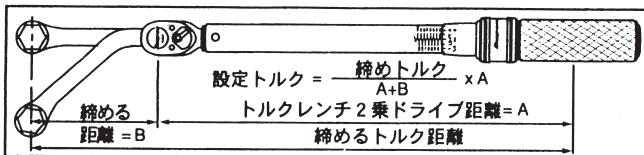 設定トルク = 締めトルク / A+B x A
締める
距離 = B
トルクレンチ2乗ドライブ距離= A
締めるトルク距離